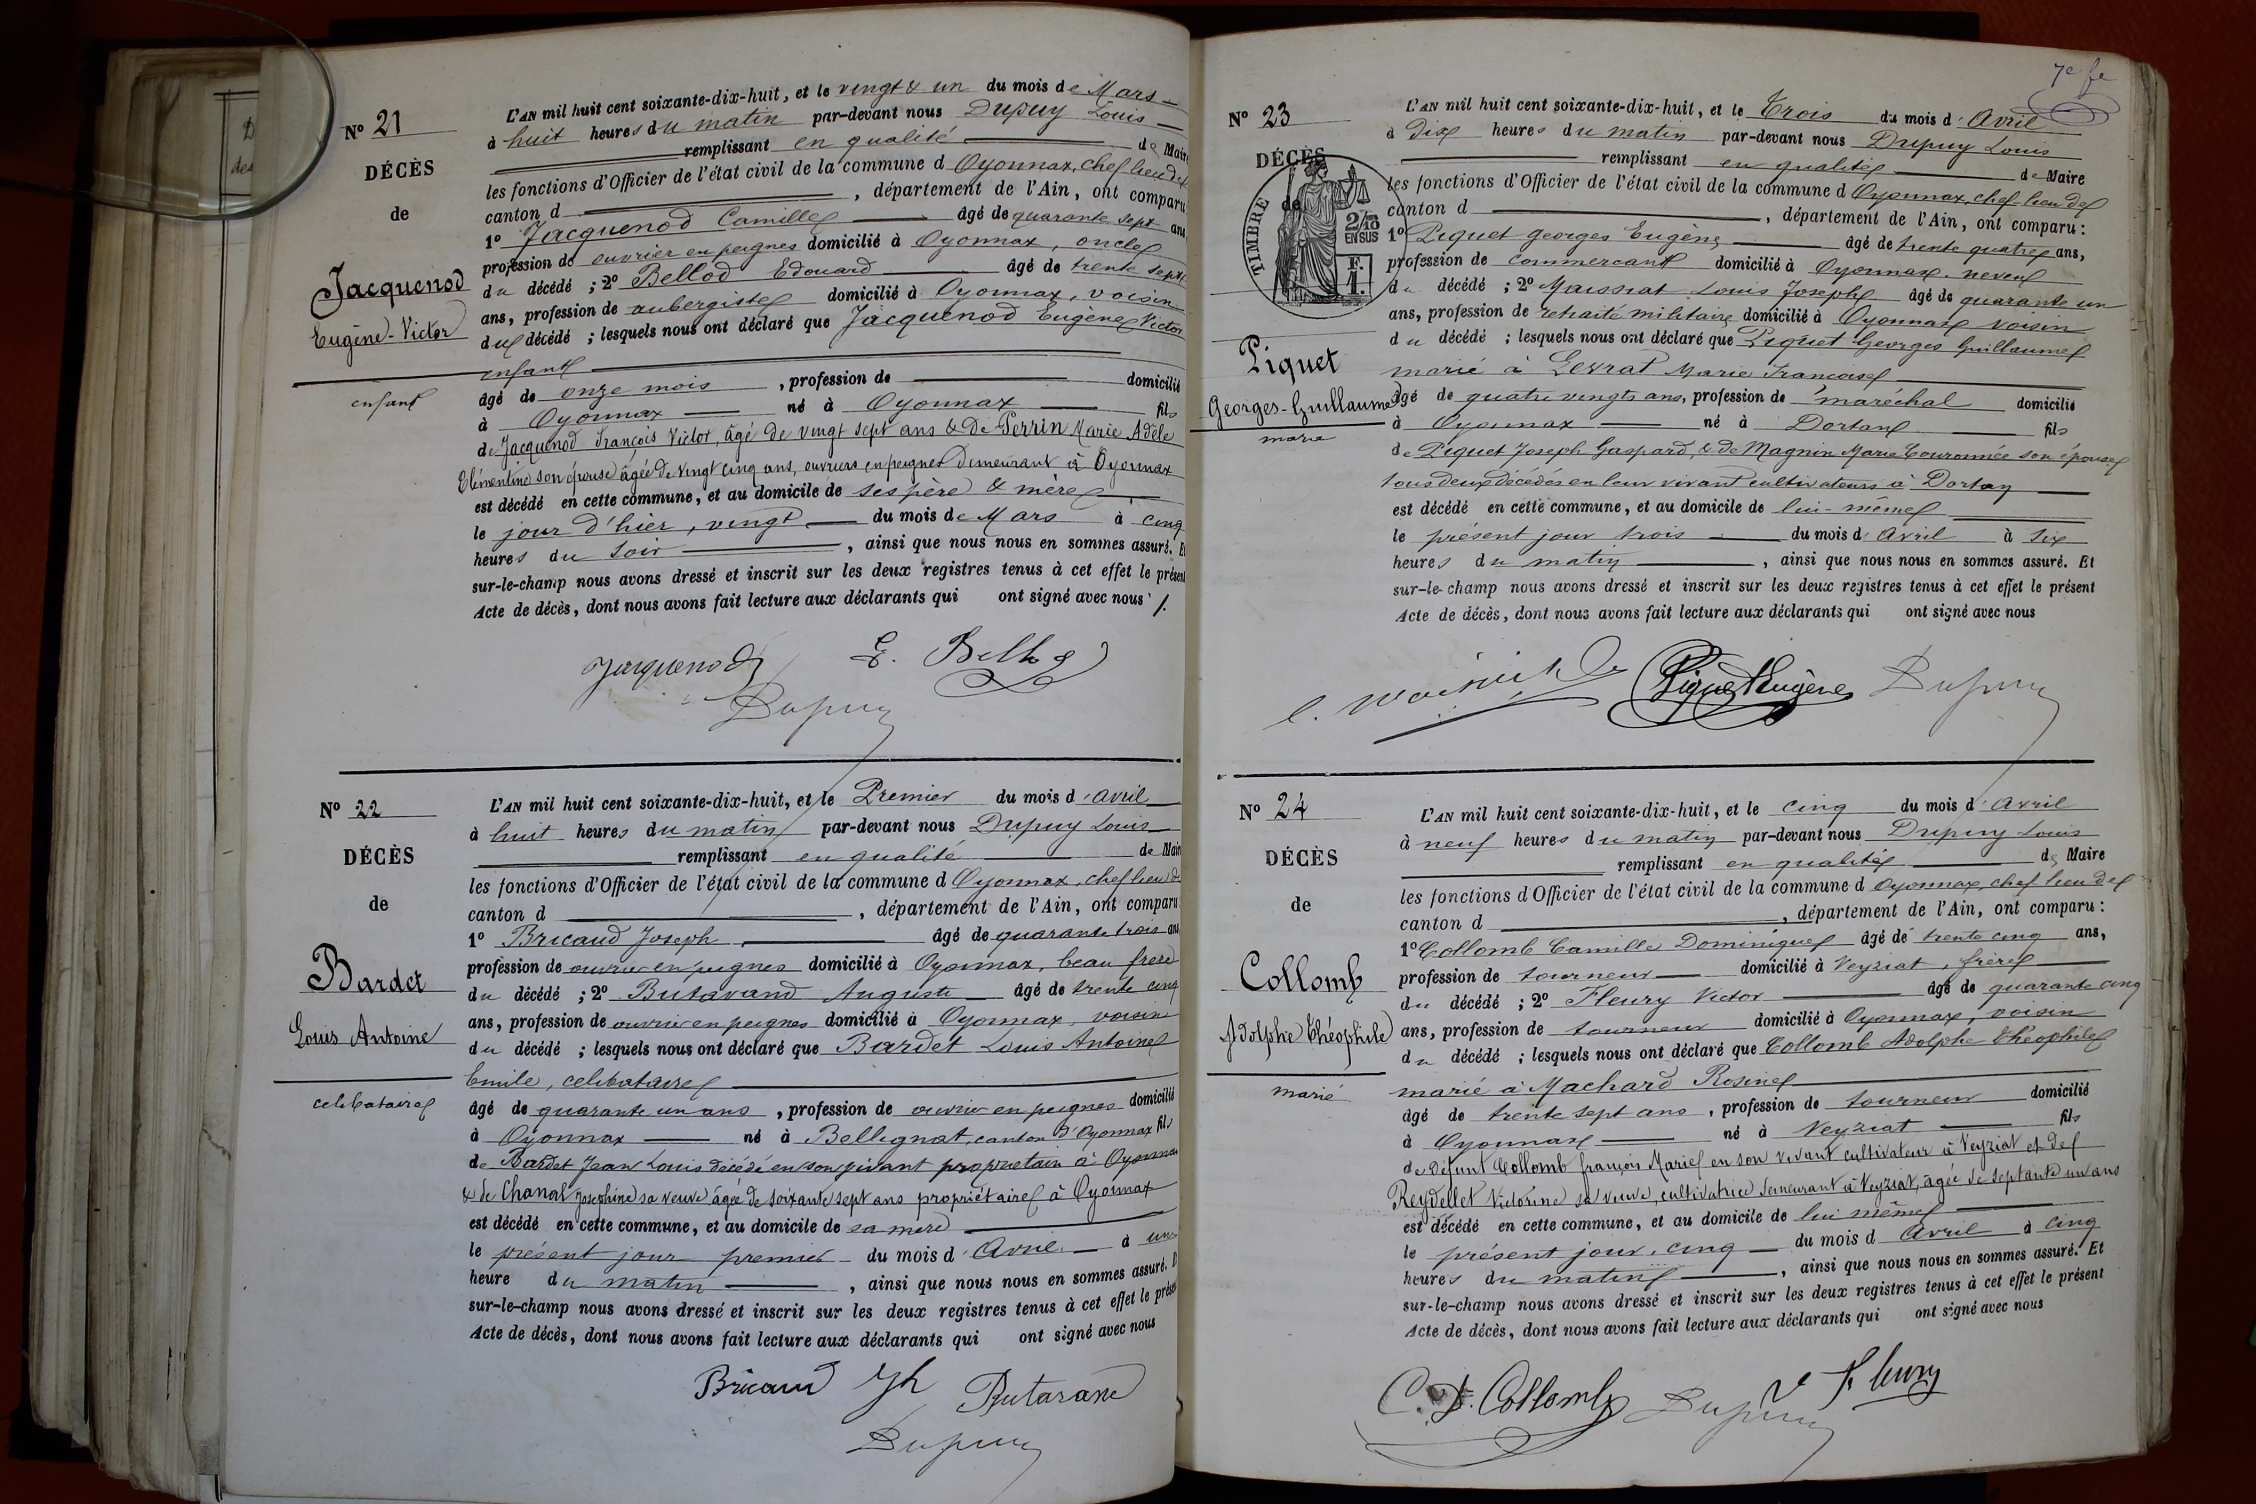 N° 21
DÉCÈS
de
Jacquenod
Eugène-Victor
enfant
L'AN mil huit cent soixante-dix-huit, et le vingt & un du mois de Mars
à huit heures du matin par-devant nous Dupuy Louis
remplissant en qualité de Maire
les fonctions d'Officier de l'état civil de la commune d Oyonnax, chef lieu de
canton d , département de l'Ain, ont comparu
1° Jacquenod Camille âgé de quarante sept ans
profession de ouvrier en peignes domicilié à Oyonnax, oncle
du décédé ; 2° Bellod Edouard âgé de trente sept
ans, profession de aubergiste domicilié à Oyonnax, voisin
du décédé ; lesquels nous ont déclaré que Jacquenod Eugène Victor
enfant
âgé de onze mois , profession de domicilié
à Oyonnax né à Oyonnax fils
de Jacquenod François Victor, âgé de vingt sept ans & de Perrin Marie Adèle
Clémentine son épouse âgée de vingt cinq ans, ouvriers en peignes demeurant à Oyonnax
est décédé en cette commune, et au domicile de ses père & mère
le jour d'hier, vingt du mois de Mars à cinq
heures du soir , ainsi que nous nous en sommes assuré. Et
sur-le-champ nous avons dressé et inscrit sur les deux registres tenus à cet effet le présent
Acte de décès, dont nous avons fait lecture aux déclarants qui ont signé avec nous /.
Jacquenod E. Bellod
Dupuy
N° 22
DÉCÈS
de
Bardet
Louis Antoine
celibataire
L'AN mil huit cent soixante-dix-huit, et le Premier du mois d'Avril
à huit heures du matin par-devant nous Dupuy Louis
remplissant en qualité de Maire
les fonctions d'Officier de l'état civil de la commune d Oyonnax, chef lieu de
canton d , département de l'Ain, ont comparu
1° Bricaud Joseph âgé de quarante trois ans
profession de ouvrier en peignes domicilié à Oyonnax, beau frere
du décédé ; 2° Butavand Auguste âgé de trente cinq
ans, profession de ouvrier en peignes domicilié à Oyonnax, voisin
du décédé ; lesquels nous ont déclaré que Bardet Louis Antoine
Emile, celibataire
âgé de quarante un ans , profession de ouvrier en peignes domicilié
à Oyonnax né à Bellignat, canton d'Oyonnax fils
de Bardet Jean Louis décédé en son vivant propriétaire à Oyonnax
& de Chanal Josephine sa veuve âgée de soixante sept ans propriétaire à Oyonnax
est décédé en cette commune, et au domicile de sa mère
le présent jour premier du mois d'Avril à une
heure du matin , ainsi que nous nous en sommes assuré. Et
sur-le-champ nous avons dressé et inscrit sur les deux registres tenus à cet effet le présent
Acte de décès, dont nous avons fait lecture aux déclarants qui ont signé avec nous
Bricaud Jh Butavand
Dupuy
7e fe
N° 23
DÉCÈS
de
TIMBRE
2/10
EN SUS
F.
1.
Piquet
Georges-Guillaume
marié
L'AN mil huit cent soixante-dix-huit, et le Trois du mois d'Avril
à dix heures du matin par-devant nous Dupuy Louis
remplissant en qualité de Maire
les fonctions d'Officier de l'état civil de la commune d Oyonnax, chef lieu de
canton d , département de l'Ain, ont comparu :
1° Piquet Georges Eugène âgé de trente quatre ans,
profession de commercant domicilié à Oyonnax, neveu
du décédé ; 2° Maissiat Louis Joseph âgé de quarante un
ans, profession de retraité militaire domicilié à Oyonnax voisin
du décédé ; lesquels nous ont déclaré que Piquet Georges Guillaume
marié à Levrat Marie Francoise
âgé de quatre vingts ans, profession de maréchal domicilié
à Oyonnax né à Dortan fils
de Piquet Joseph Gaspard, & de Magnin Marie Couronnée son épouse
tous deux décédés en leur vivant cultivateurs à Dortan
est décédé en cette commune, et au domicile de lui-même
le présent jour trois du mois d'Avril à six
heures du matin , ainsi que nous nous en sommes assuré. Et
sur-le-champ nous avons dressé et inscrit sur les deux registres tenus à cet effet le présent
Acte de décès, dont nous avons fait lecture aux déclarants qui ont signé avec nous
Piquet Eugène Dupuy
N° 24
DÉCÈS
de
Collomb
Adolphe Théophile
marié
L'AN mil huit cent soixante-dix-huit, et le cinq du mois d'Avril
à neuf heures du matin par-devant nous Dupuy Louis
remplissant en qualité de Maire
les fonctions d'Officier de l'état civil de la commune d Oyonnax, chef lieu de
canton d , département de l'Ain, ont comparu :
1° Collomb Camille Dominique âgé de trente cinq ans,
profession de tourneur domicilié à Veyziat, frère
du décédé ; 2° Fleury Victor âgé de quarante cinq
ans, profession de tourneur domicilié à Oyonnax, voisin
du décédé ; lesquels nous ont déclaré que Collomb Adolphe Théophile
marié à Machard Rosine
âgé de trente sept ans , profession de tourneur domicilié
à Oyonnax né à Veyziat fils
de défunt Collomb françois Marie en son vivant cultivateur à Veyziat et de
Reydellet Victorine sa veuve, cultivatrice demeurant à Veyziat, âgée de septante un ans
est décédé en cette commune, et au domicile de lui même
le présent jour, cinq du mois d Avril à cinq
heures du matin , ainsi que nous nous en sommes assuré. Et
sur-le-champ nous avons dressé et inscrit sur les deux registres tenus à cet effet le présent
Acte de décès, dont nous avons fait lecture aux déclarants qui ont signé avec nous
C. D. Collomb Dupuy V Fleury